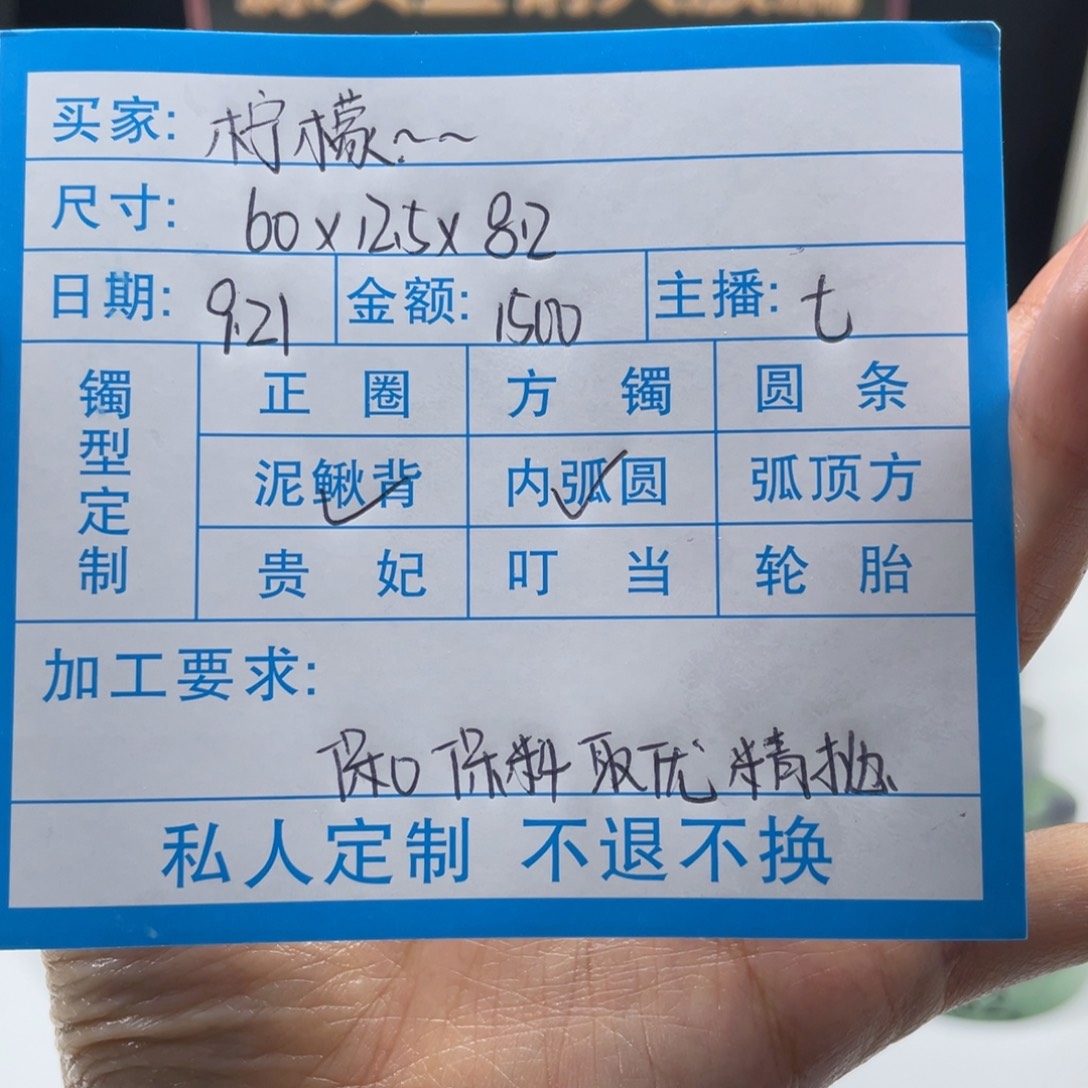 买家: 柠檬~~
尺寸: 60x12.5x8.2
日期: 9.21 金额: 1500 主播: 七
镯型定制
正圈 方镯 圆条
泥鳅背 内弧圆 弧顶方
贵妃 叮当 轮胎
加工要求:
保口保料取优精抛
私人定制 不退不换